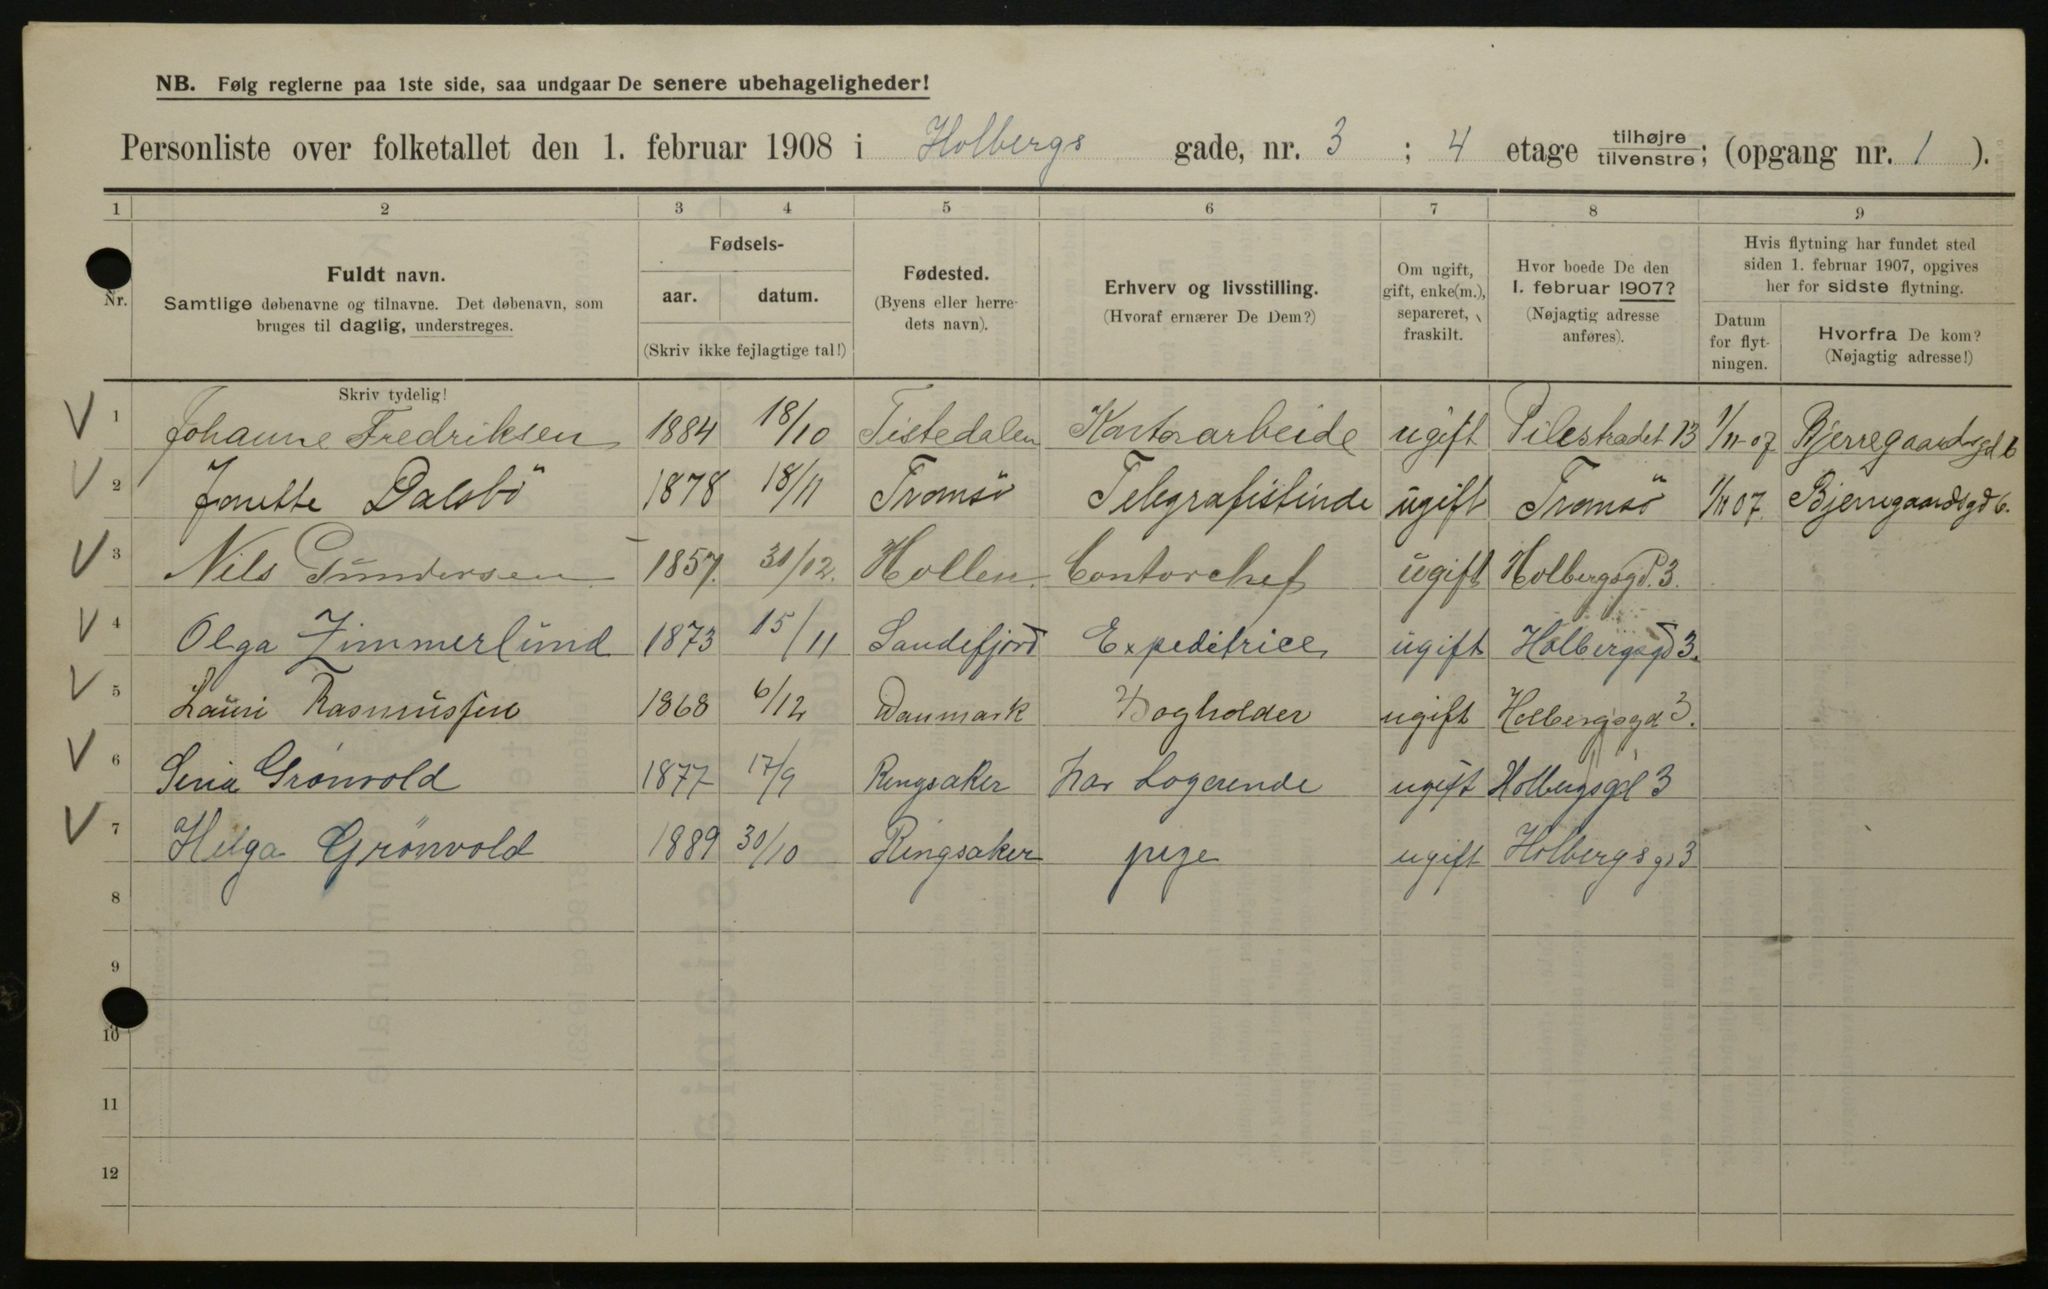 NB. Følg reglerne paa 1ste side, saa undgaar De senere ubehageligheder!
Personliste over folketallet den 1. februar 1908 i Holbergs gade, nr. 3 ; 4 etage tilhøjre tilvenstre; (opgang nr. 1 ).
1 2 3 4 5 6 7 8 9
Nr.
Fuldt navn.
Samtlige døbenavne og tilnavne. Det døbenavn, som
bruges til daglig, understreges.
Skriv tydelig!
Fødsels-
aar. datum.
(Skriv ikke fejlagtige tal!)
Fødested.
(Byens eller herre-
dets navn).
Erhverv og livsstilling.
(Hvoraf ernærer De Dem?)
Om ugift,
gift, enke(m.),
separeret,
fraskilt.
Hvor boede De den
1. februar 1907?
(Nøjagtig adresse
anføres).
Hvis flytning har fundet sted
siden 1. februar 1907, opgives
her for sidste flytning.
Datum
for flyt-
ningen.
Hvorfra De kom?
(Nøjagtig adresse!)
1 Johanne Fredriksen 1884 18/10 Tistedalen Kontorarbeide ugift Pilestrædet 13 1/11-07 Bjerregaardsgd 6
2 Jonette Dalsbö 1878 18/11 Tromsö Telegrafistinde ugift Tromsö 1/11 07. Bjerregaardsgd 6.
3 Nils Gundersen 1857. 30/12. Hollen. Contorchef ugift Holbergsgd. 3.
4 Olga Zimmerlund 1873 15/11 Sandefjord Expeditrice ugift Holbergsgd 3.
5 Lauri Rasmussen 1868 6/12 Danmark Bogholder ugift Holbergsgd 3.
6 Senia Grönvold 1877 17/9 Ringsaker har Logerende ugift Holbergsgd 3
7 Helga Grönvold 1889 30/10 Ringsaker pige ugift Holbergsgd 3
8
9
10
11
12